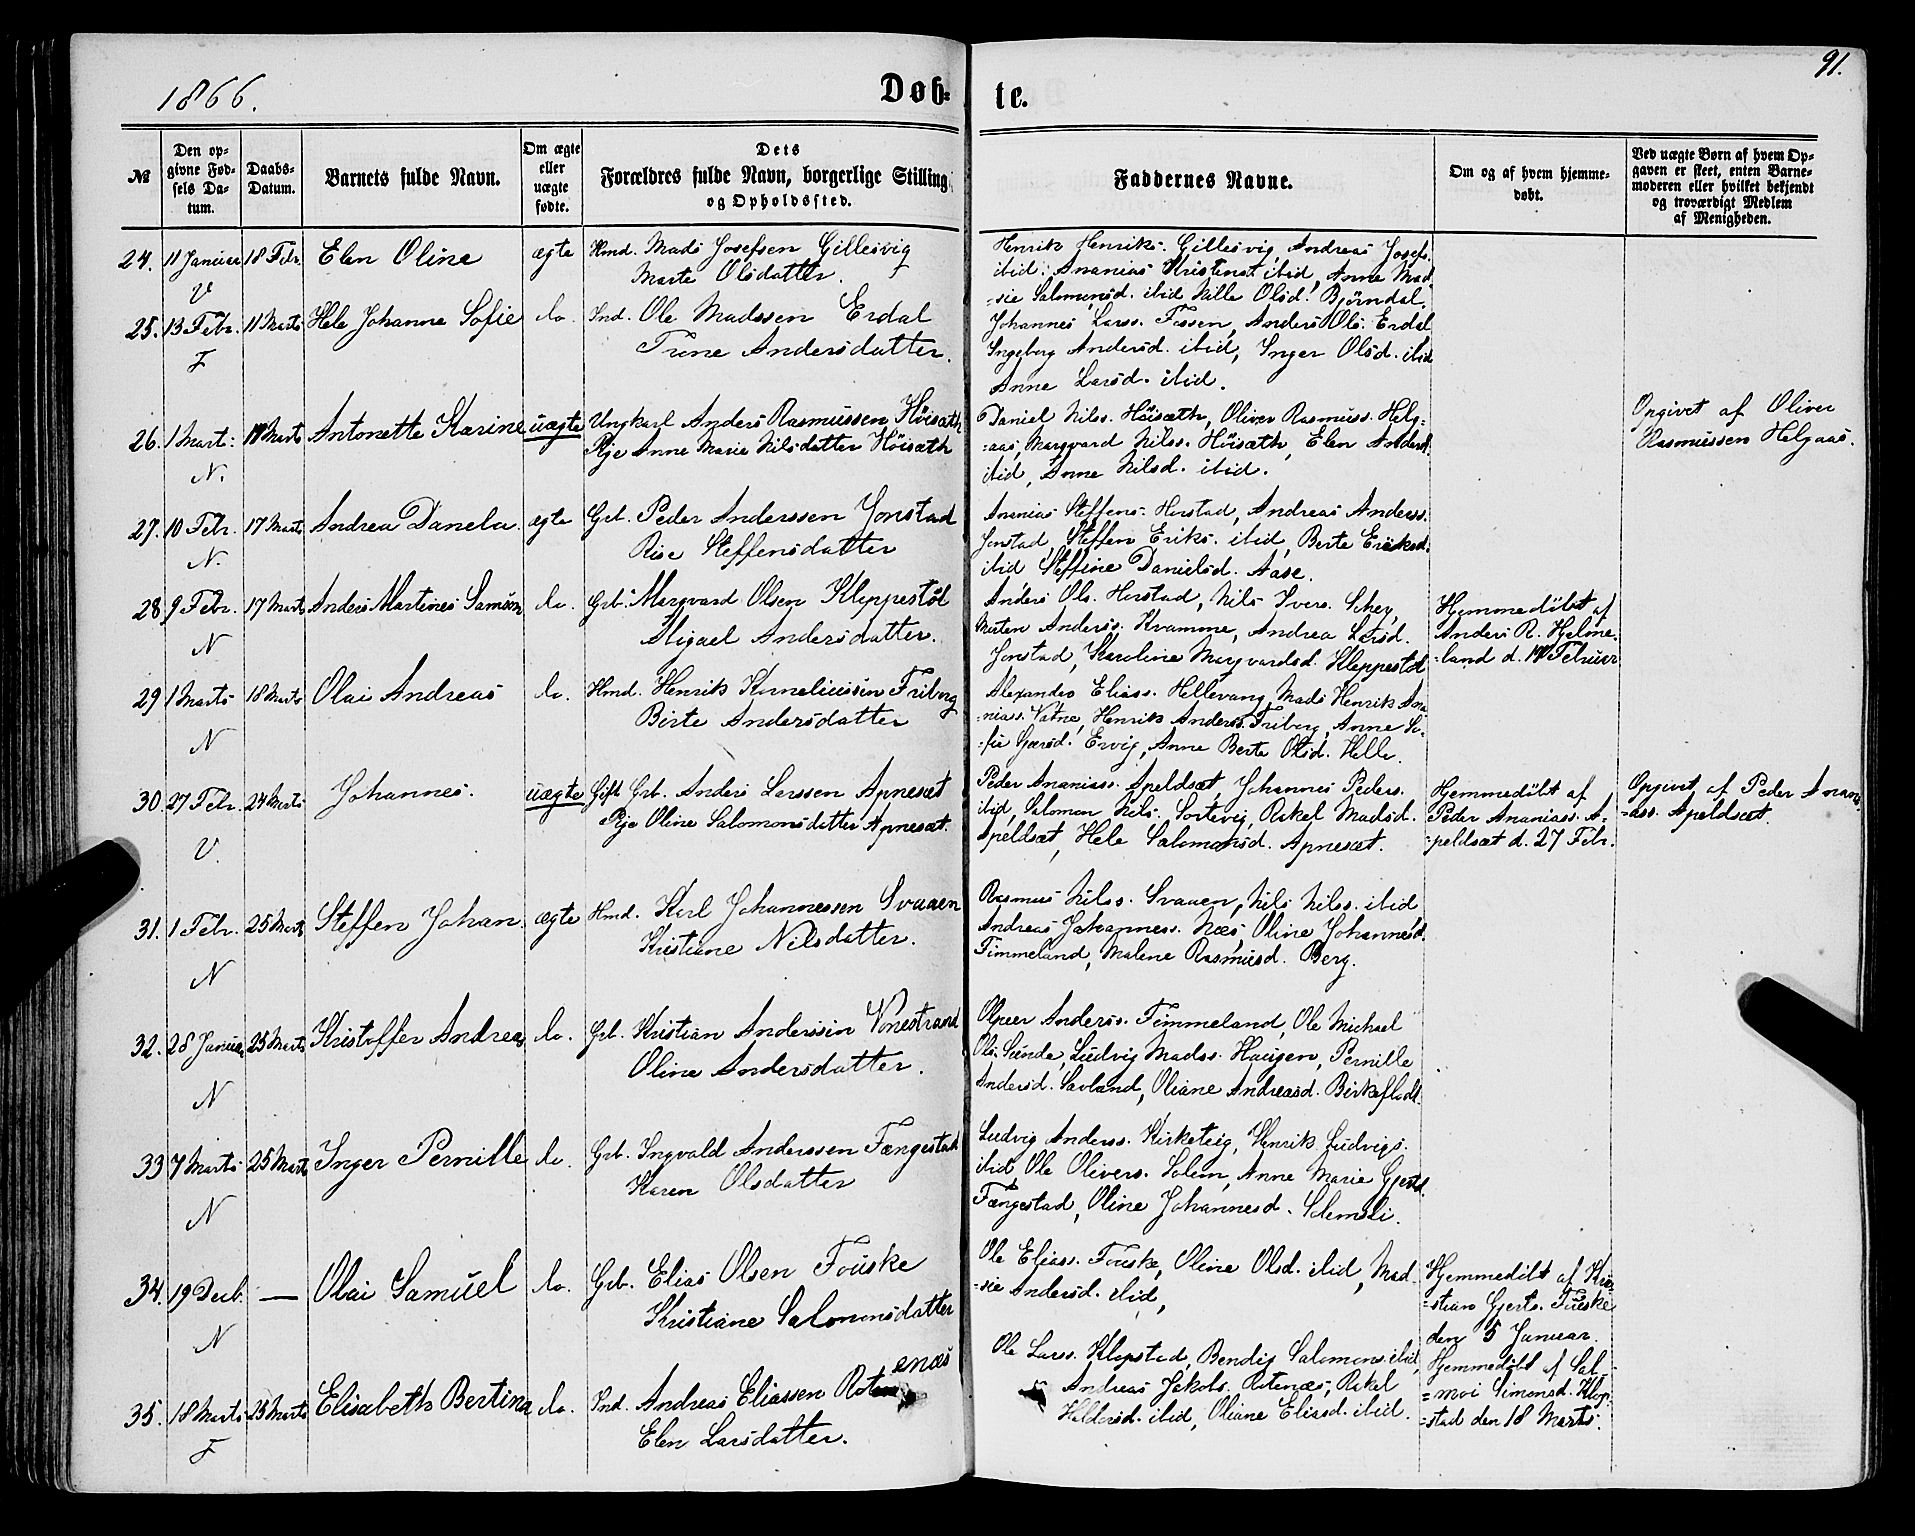 1866.
Døb-
te.
91.
№
Den op-
givne Fød-
sels Da-
tum.
Daabs-
Datum.
Barnets fulde Navn.
Om ægte
eller
uægte
fødte.
Dets
Forældres fulde Navn, borgerlige Stilling
og Opholdssted.
Faddernes Navne.
Om og af hvem hjemme-
døbt.
Ved uægte Børn af hvem Op-
gaven er skeet, enten Barne-
moderen eller hvilket bekjendt
og troværdigt Medlem
af Menigheden.
24. 11 Januar 18 Febr. Elen Oline ægte Hmd. Mads Josefsen Gillesvig
V
Marte Olsdatter.
Henrik Henriks. Gillesvig, Andreas Josefs.
ibid. Ananias Kristenst ibid, Anne Mad-
=sie Salomonsd. ibid Nille Olsd. Bjørndal.
25. 13 Febr. 11 Marts Hele Johanne Sofie do. Ind. Ole Madssen Erdal
F
Trine Andersdatter.
Johannes Larss. Fossen, Anders Ols. Erdal
Ingeborg Andersd. ibid, Inger Olsd. ibid
Anne Larsd. ibid.
26. 1 Mart: Mart Antonette Karine uægte Ungkarl Anders Rasmussen Höisæth
N.
Pige Anne Marie Nilsdatter Höisæth
Daniel Nilss. Höisæth, Oliver Rasmuss. Helg-
=aas, Margvard Nilss. Höisæth, Elen Andersd.
ibid, Anne Nilsd. ibid.
Opgivet af Oliver
Rasmussen Helgaas.
27. 10 Febr. 17 Marts Andrea Danela ægte Grb. Peder Anderssen Jonstad
N.
Rise Steffensdatter
Ananias Steffens. Horstad, Andreas Anderss.
Jonstad, Steffen Eriks. ibid, Berte Eriksd.
ibid Steffine Danielsd. Aase.
28. 9 Febr. 17 Marts Anders Martines Samson do. Grb. Margvard Olsen Kleppestöl
N
Abigael Andersdatter.
Anders Ols. Horstad, Nils Ivers. Schey,
Morten Anderss. Kvamme, Andrea Larsd.
Jonstad, Karoline Margvardsd. Kleppestöl
Hjemmedöbt af
Anders R. Hjelme-
=land d. Februar
29 1 Marts 18 Marts Olai Andreas do. Hmd. Henrik Korneliussen Friborg
N
Birte Andersdatter
Alexander Eliass. Hellevang, Mads Henrik Ana-
=niass. Vatne, Henrik Anderss. Friborg, Anne So-
=fie Ervig, Anne Berte Olsd. Helle.
30 27 Febr. 24 Marts Johannes. uægte Gift Grb. Anders Larssen Apnesæt
V.
Pige Oline Salomonsdatter Apnesæt.
Peder Ananiass. Apeldsæt, Johannes Peders.
ibid, Salomon Nils. Sortevig, Rakel Madsd.
Apeldsæt, Hele Salomonsd. Apnesæt.
Hjemmedöbt af
Peder Ananiass. A-
=peldsæt d. 27 Febr.
Opgivet af Peder Anani-
=ass. Apeldsæt.
31. 1 Febr. 25 Marts Steffen Johan ægte Hmd. Karl Johannessen Svaaen
N
Kristiane Nilsdatter.
Rasmus Nilss. Svaaen, Nils Nilss. ibid
Andreas Johanness. Næs, Oline Johannesd.
Timmeland, Malene Rasmusd. Berg.
32. 28 Januar 25 Marts Kristoffer Andreas do. Grb. Kristian Anderssen Vonestrand
N
Oline Andersdatter.
Olpeer Anderss. Timmeland, Ole Michael
Ols. Sunde, Ludvig Madss. Haugen, Pernille
Andersd. Savland, Oliane Andreasd. Birkeflodt.
33 7 Marts 25 Marts Inger Pernille do. Grb. Ingvald Anderssen Fængestad
N
Karen Olsdatter
Ludvig Anderss. Kirketeig, Henrik Ludvigs.
ibid Ole Olivers. Solem, Anne Marie Gjertsd.
Fængestad, Oline Johannesd. Solemsli.
34. 19 Decb. — Olai Samuel do. Grb. Elias Olsen Fouske
N
Kristiane Salomonsdatter
Ole Eliass. Fouske, Oline Olsd. ibid, Mad-
=sie Andersd. ibid,
Hjemmedöbt af Kri-
=stian Gjerts. Fuske
den 5 Januar.
35. 18 Marts 25 Marts Elisabeth Bertina do. Ind. Andreas Eliassen Rotenæs
F
Elen Larsdatter.
Ole Larss. Klopstad, Bendix Salomons. ibid,
Andreas Jakobs. Rotenæs, Rakel
Haldorsd. ibid, Oliane Eliasd. ibid.
Hjemmedöbt af Sal-
=moi Simonsd. Klop-
=stad den 18 Marts.